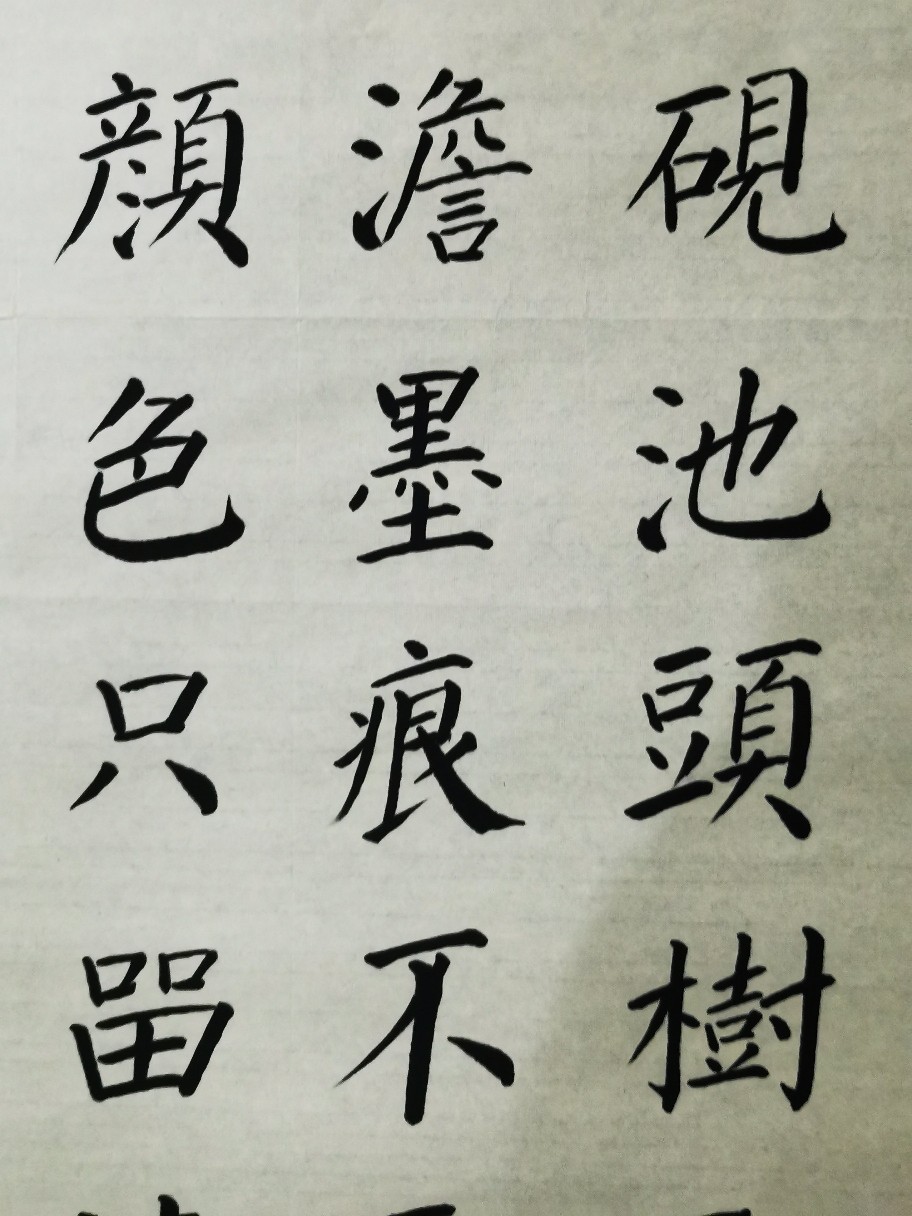 硯池頭樹
澹墨痕不
顔色只畱